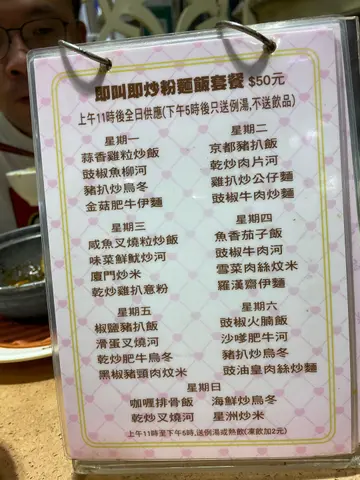 即叫即炒粉麵飯套餐 $50元
上午11時後全日供應(下午5時後只送例湯,不送飲品)
星期一
蒜香雞粒炒飯
豉椒魚柳河
豬扒炒烏冬
金菇肥牛伊麵
星期二
京都豬扒飯
乾炒肉片河
雞扒炒公仔麵
豉椒牛肉炒麵
星期三
咸魚叉燒粒炒飯
味菜鮮魷炒河
廈門炒米
乾炒雞扒意粉
星期四
魚香茄子飯
豉椒牛肉河
雪菜肉絲炆米
羅漢齋伊麵
星期五
椒鹽豬扒飯
滑蛋叉燒河
乾炒肥牛烏冬
黑椒豬頸肉炆米
星期六
豉椒火腩飯
沙嗲肥牛河
豬扒炒烏冬
豉油皇肉絲炒麵
星期日
咖喱排骨飯
乾炒叉燒河
海鮮炒烏冬
星洲炒米
上午11時至下午5時,送例湯或熱飲(凍飲加2元)